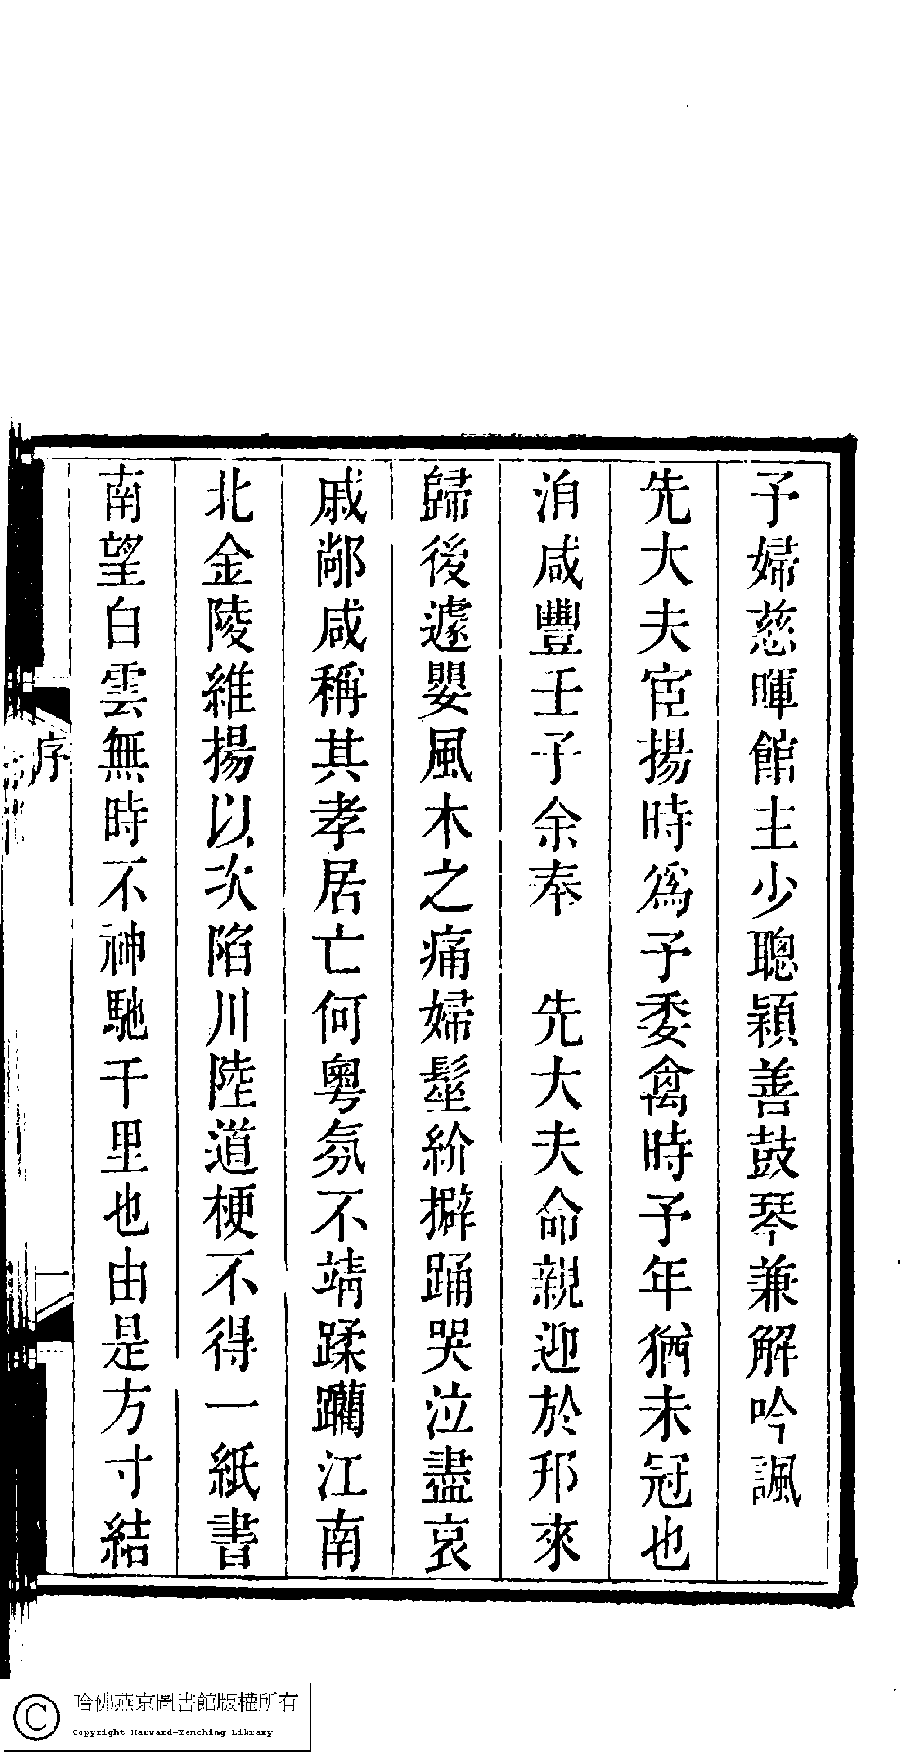 予婦慈暉館主少聰穎善鼓琴兼解吟諷
先大夫宦揚時爲予委禽時予年猶未冠也
洎咸豐壬子余奉　先大夫命親迎於邗來
歸後遽嬰風木之痛婦髽紒擗踊哭泣盡哀
戚鄰咸稱其孝居亡何粵氛不靖蹂躪江南
北金陵維揚以次陷川陸道梗不得一紙書
南望白雲無時不神馳千里也由是方寸結
序
一
哈佛燕京圖書館版權所有
Copyright Harvard-Yenching Library